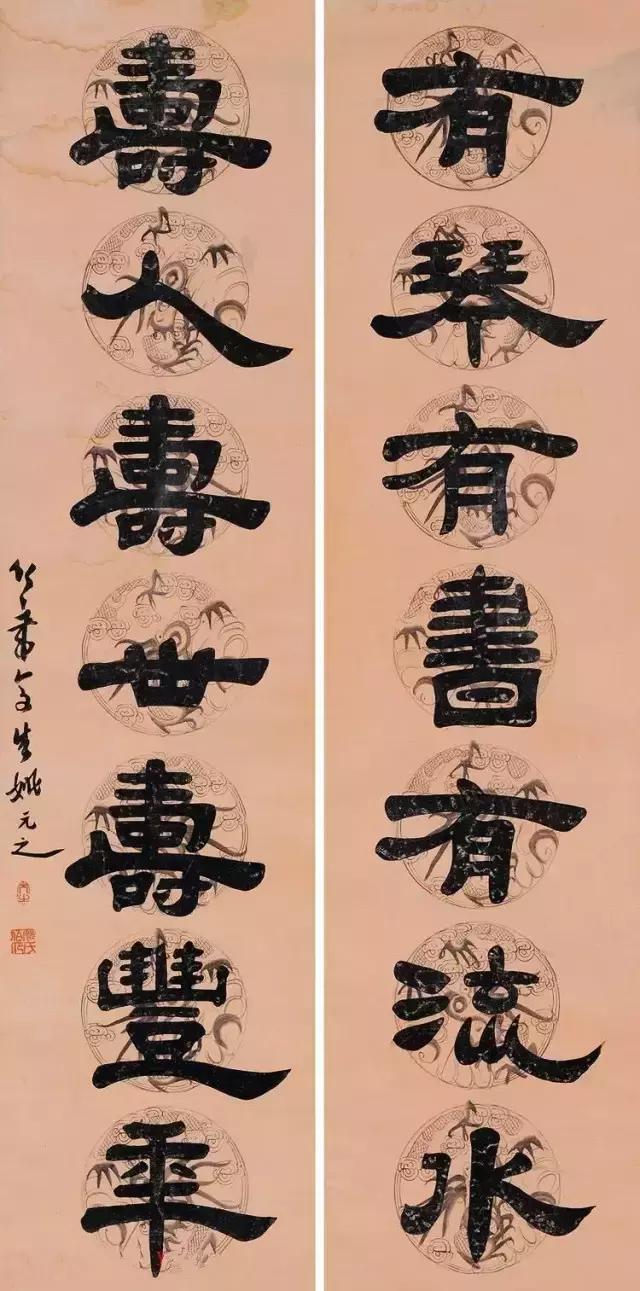 有琴有書有流水
壽人壽世壽豐年
竹葉亭生姚元之